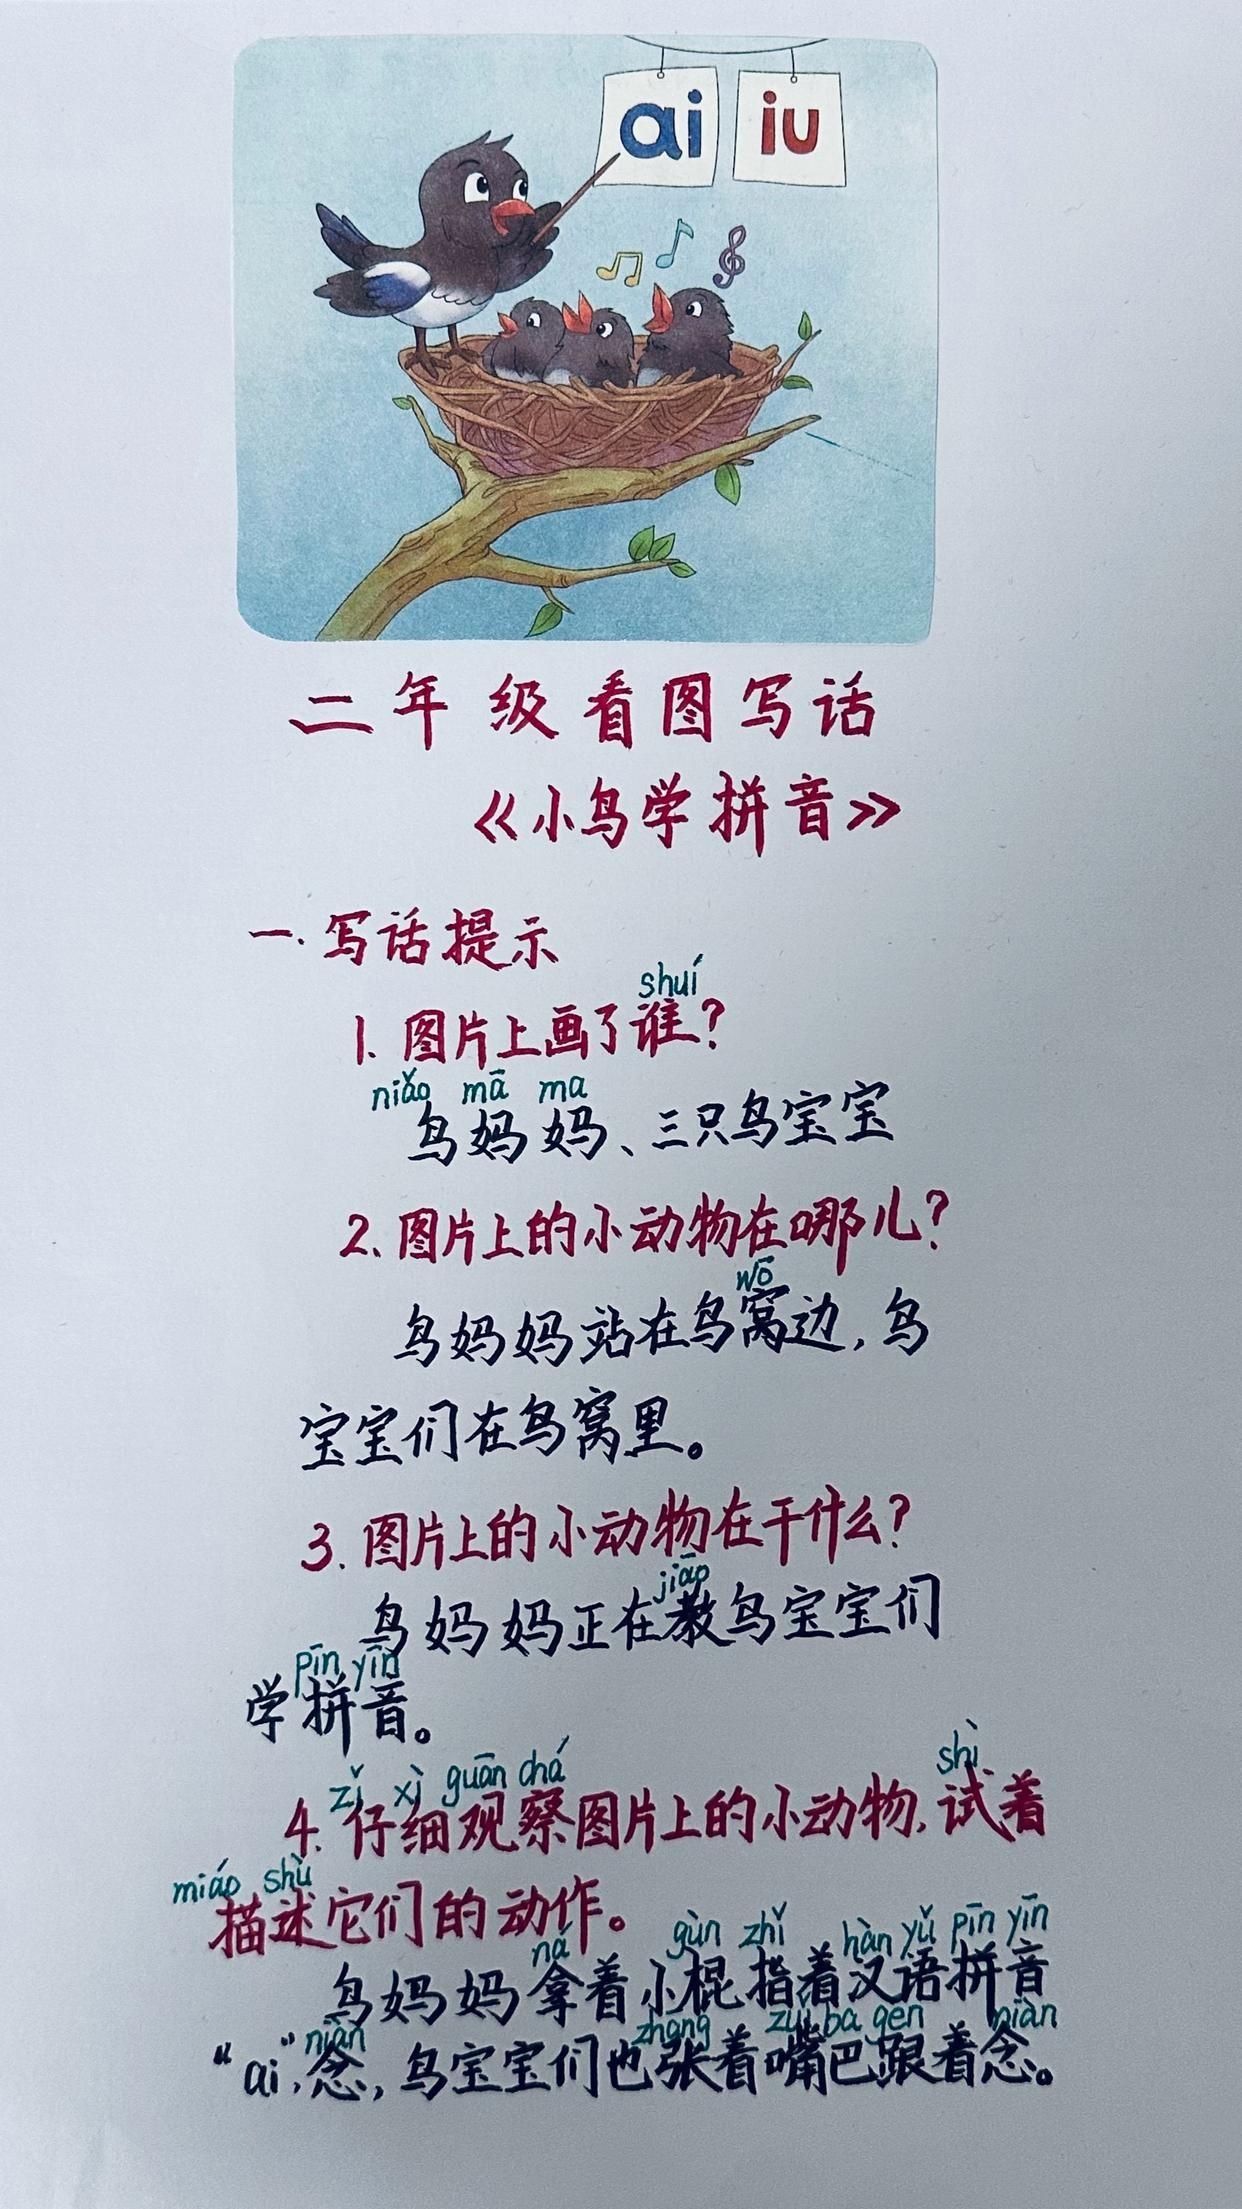 ai iu
二年级看图写话
《小鸟学拼音》
一.写话提示
shuí
1.图片上画了谁?
niǎo mā ma
鸟妈妈、三只鸟宝宝
2.图片上的小动物在哪儿?
wō
鸟妈妈站在鸟窝边,鸟
宝宝们在鸟窝里。
3.图片上的小动物在干什么?
jiāo
鸟妈妈正在教鸟宝宝们
pīn yīn
学拼音。
zǐ xì guān chá shì
4.仔细观察图片上的小动物,试着
miáo shù
描述它们的动作。
ná gùn zhǐ hàn yǔ pīn yīn
鸟妈妈拿着小棍指着汉语拼音
niàn zhāng zuǐ ba gēn niàn
“ai”念,鸟宝宝们也张着嘴巴跟着念。